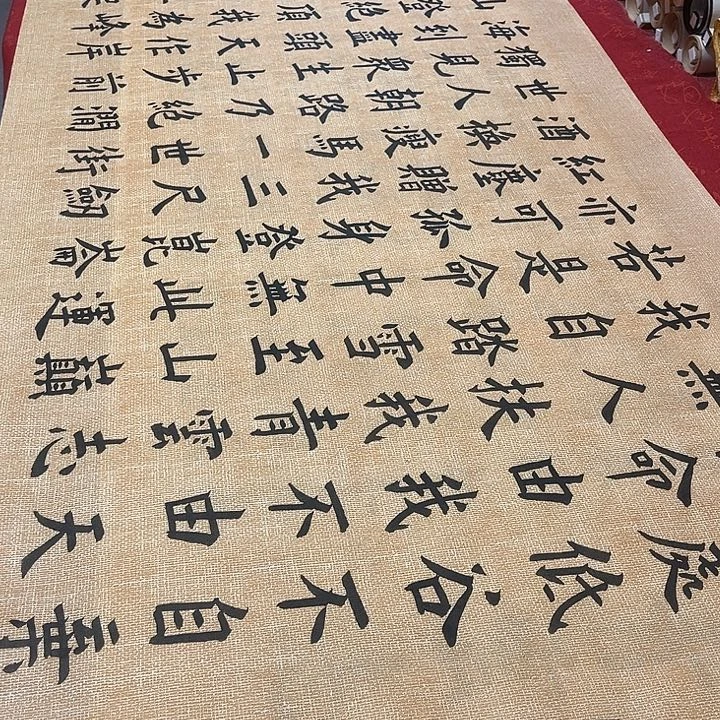 處低谷不自棄
命由我不由天
無人扶我青雲志
我自踏雪至山巔
若是命中無此運
亦可孤身登崑崙
紅塵贈我三尺劒
酒換瘦馬一世街
世人朝路乃絕澗
獨見衆生止步前
海到盡頭天作岸
山登絕頂我為峰